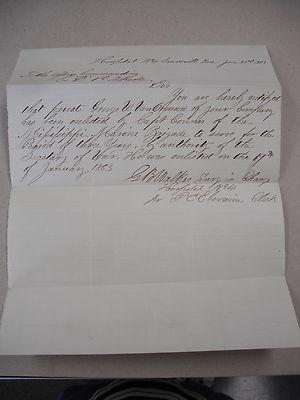 Hospital No 4 Evansville Ind. Jan 21st 1863
To the Officer Commanding
Co
Sir
You are hereby notified
that private George W. of your Company
has been enlisted by Capt Conner of the
Mississippi Marine Brigade to serve for the
Period of three Years, By authority of the
Secretary of War. He was enlisted on the 19th
of January 1863
G B Walker Surg in Charge
Hospital No 4
Clerk